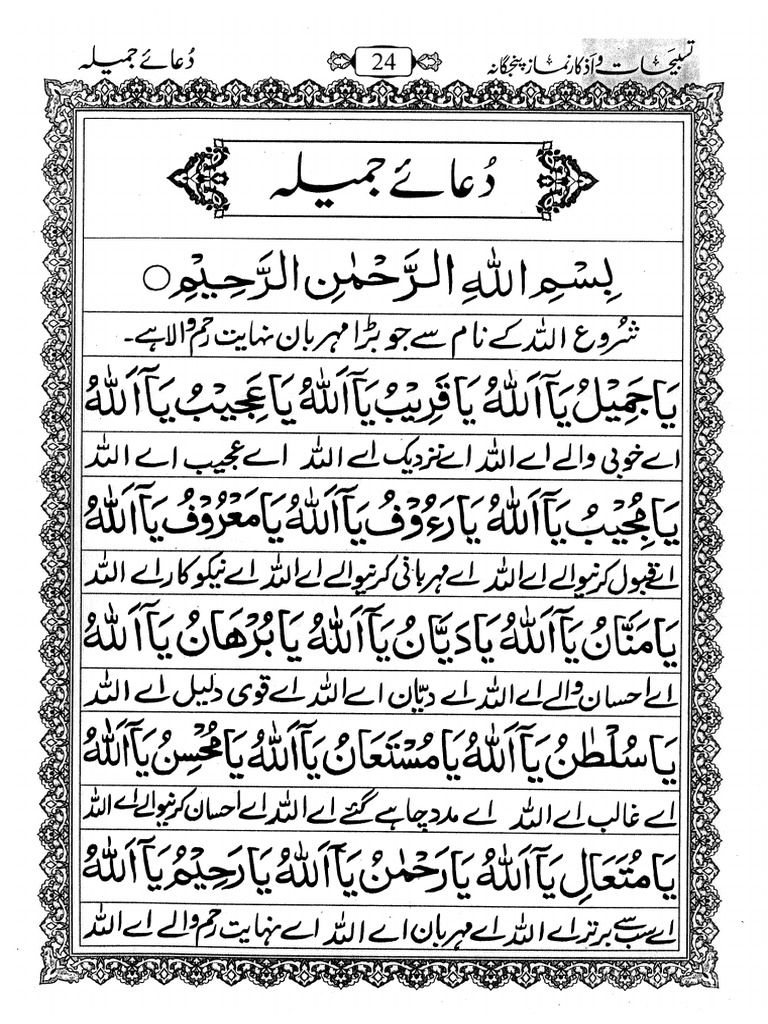 تسبیحات و اذکار نماز پنجگانہ 24 دُعائے جمیلہ
دُعائے جمیلہ
بِسْمِ اللّٰهِ الرَّحْمٰنِ الرَّحِيْمِ○
شروع اللہ کے نام سے جو بڑا مہربان نہایت رحم والا ہے۔
يَا جَمِيْلُ يَآ اَللّٰهُ يَا قَرِيْبُ يَآ اَللّٰهُ يَا عَجِيْبُ يَآ اَللّٰهُ
اے خوبی والے اے اللہ اے نزدیک اے اللہ اے عجیب اے اللہ
يَا مُجِيْبُ يَآ اَللّٰهُ يَا رَءُوْفُ يَآ اَللّٰهُ يَا مَعْرُوْفُ يَآ اَللّٰهُ
اے قبول کرنیوالے اے اللہ اے مہربانی کرنیوالے اے اللہ اے نیکوکار اے اللہ
يَا مَنَّانُ يَآ اَللّٰهُ يَا دَيَّانُ يَآ اَللّٰهُ يَا بُرْهَانُ يَآ اَللّٰهُ
اے احسان والے اے اللہ اے دیّان اے اللہ اے قوی دلیل اے اللہ
يَا سُلْطٰنُ يَآ اَللّٰهُ يَا مُسْتَعَانُ يَآ اَللّٰهُ يَا مُحْسِنُ يَآ اَللّٰهُ
اے غالب اے اللہ اے مدد چاہے گئے اے اللہ اے احسان کرنیوالے اے اللہ
يَا مُتَعَالِ يَآ اَللّٰهُ يَا رَحْمٰنُ يَآ اَللّٰهُ يَا رَحِيْمُ يَآ اَللّٰهُ
اے سب سے برتر اے اللہ اے مہربان اے اللہ اے نہایت رحم والے اے اللہ